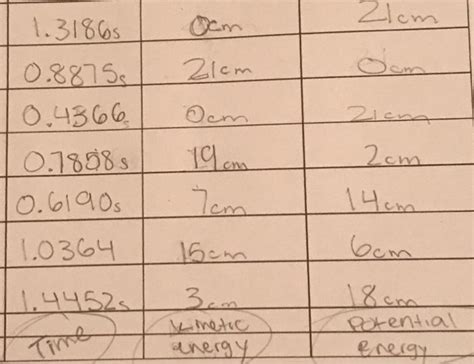 1.3186s 0cm 21cm
0.8875s 21cm 0cm
0.4366 0cm 21cm
0.7858s 19cm 2cm
0.6190s 7cm 14cm
1.0364 15cm 6cm
1.4452s 3cm 18cm
Time kinetic energy potential energy